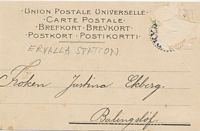 UNION POSTALE UNIVERSELLE
CARTE POSTALE
BREFKORT · BREVKORT
POSTKORT · POSTIKORTTI
ERVALLA STATION
Fröken Justina Ekberg
Balingslöf